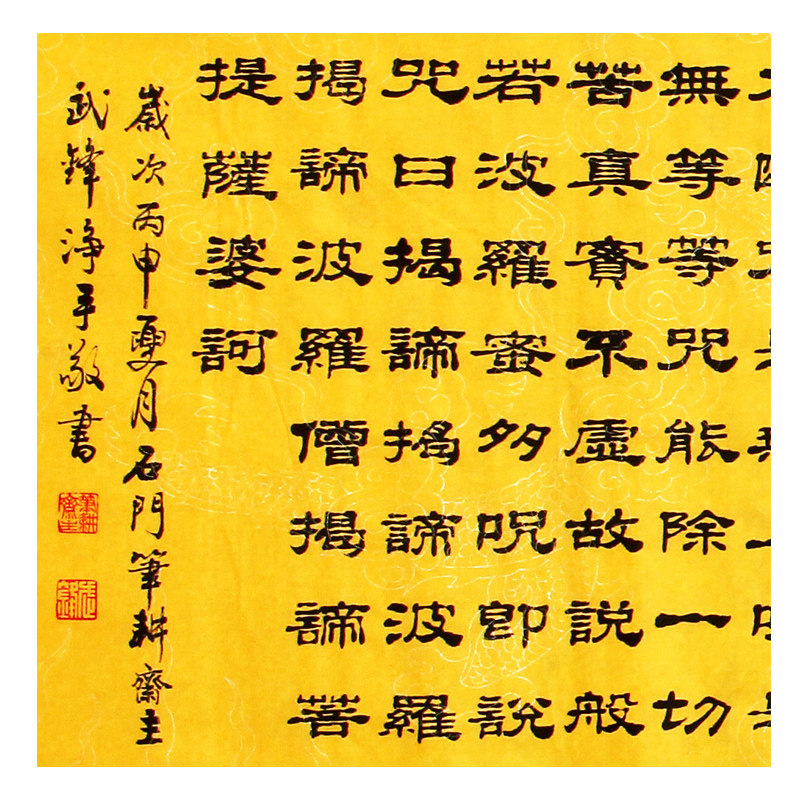 無等等咒能除一切
苦真實不虛故説般
若波羅蜜多呪即説
咒曰揭諦揭諦波羅
揭諦波羅僧揭諦菩
提薩婆訶
歲次丙申夏月石門筆耕齋主
武鋒淨手敬書
筆耕齋主